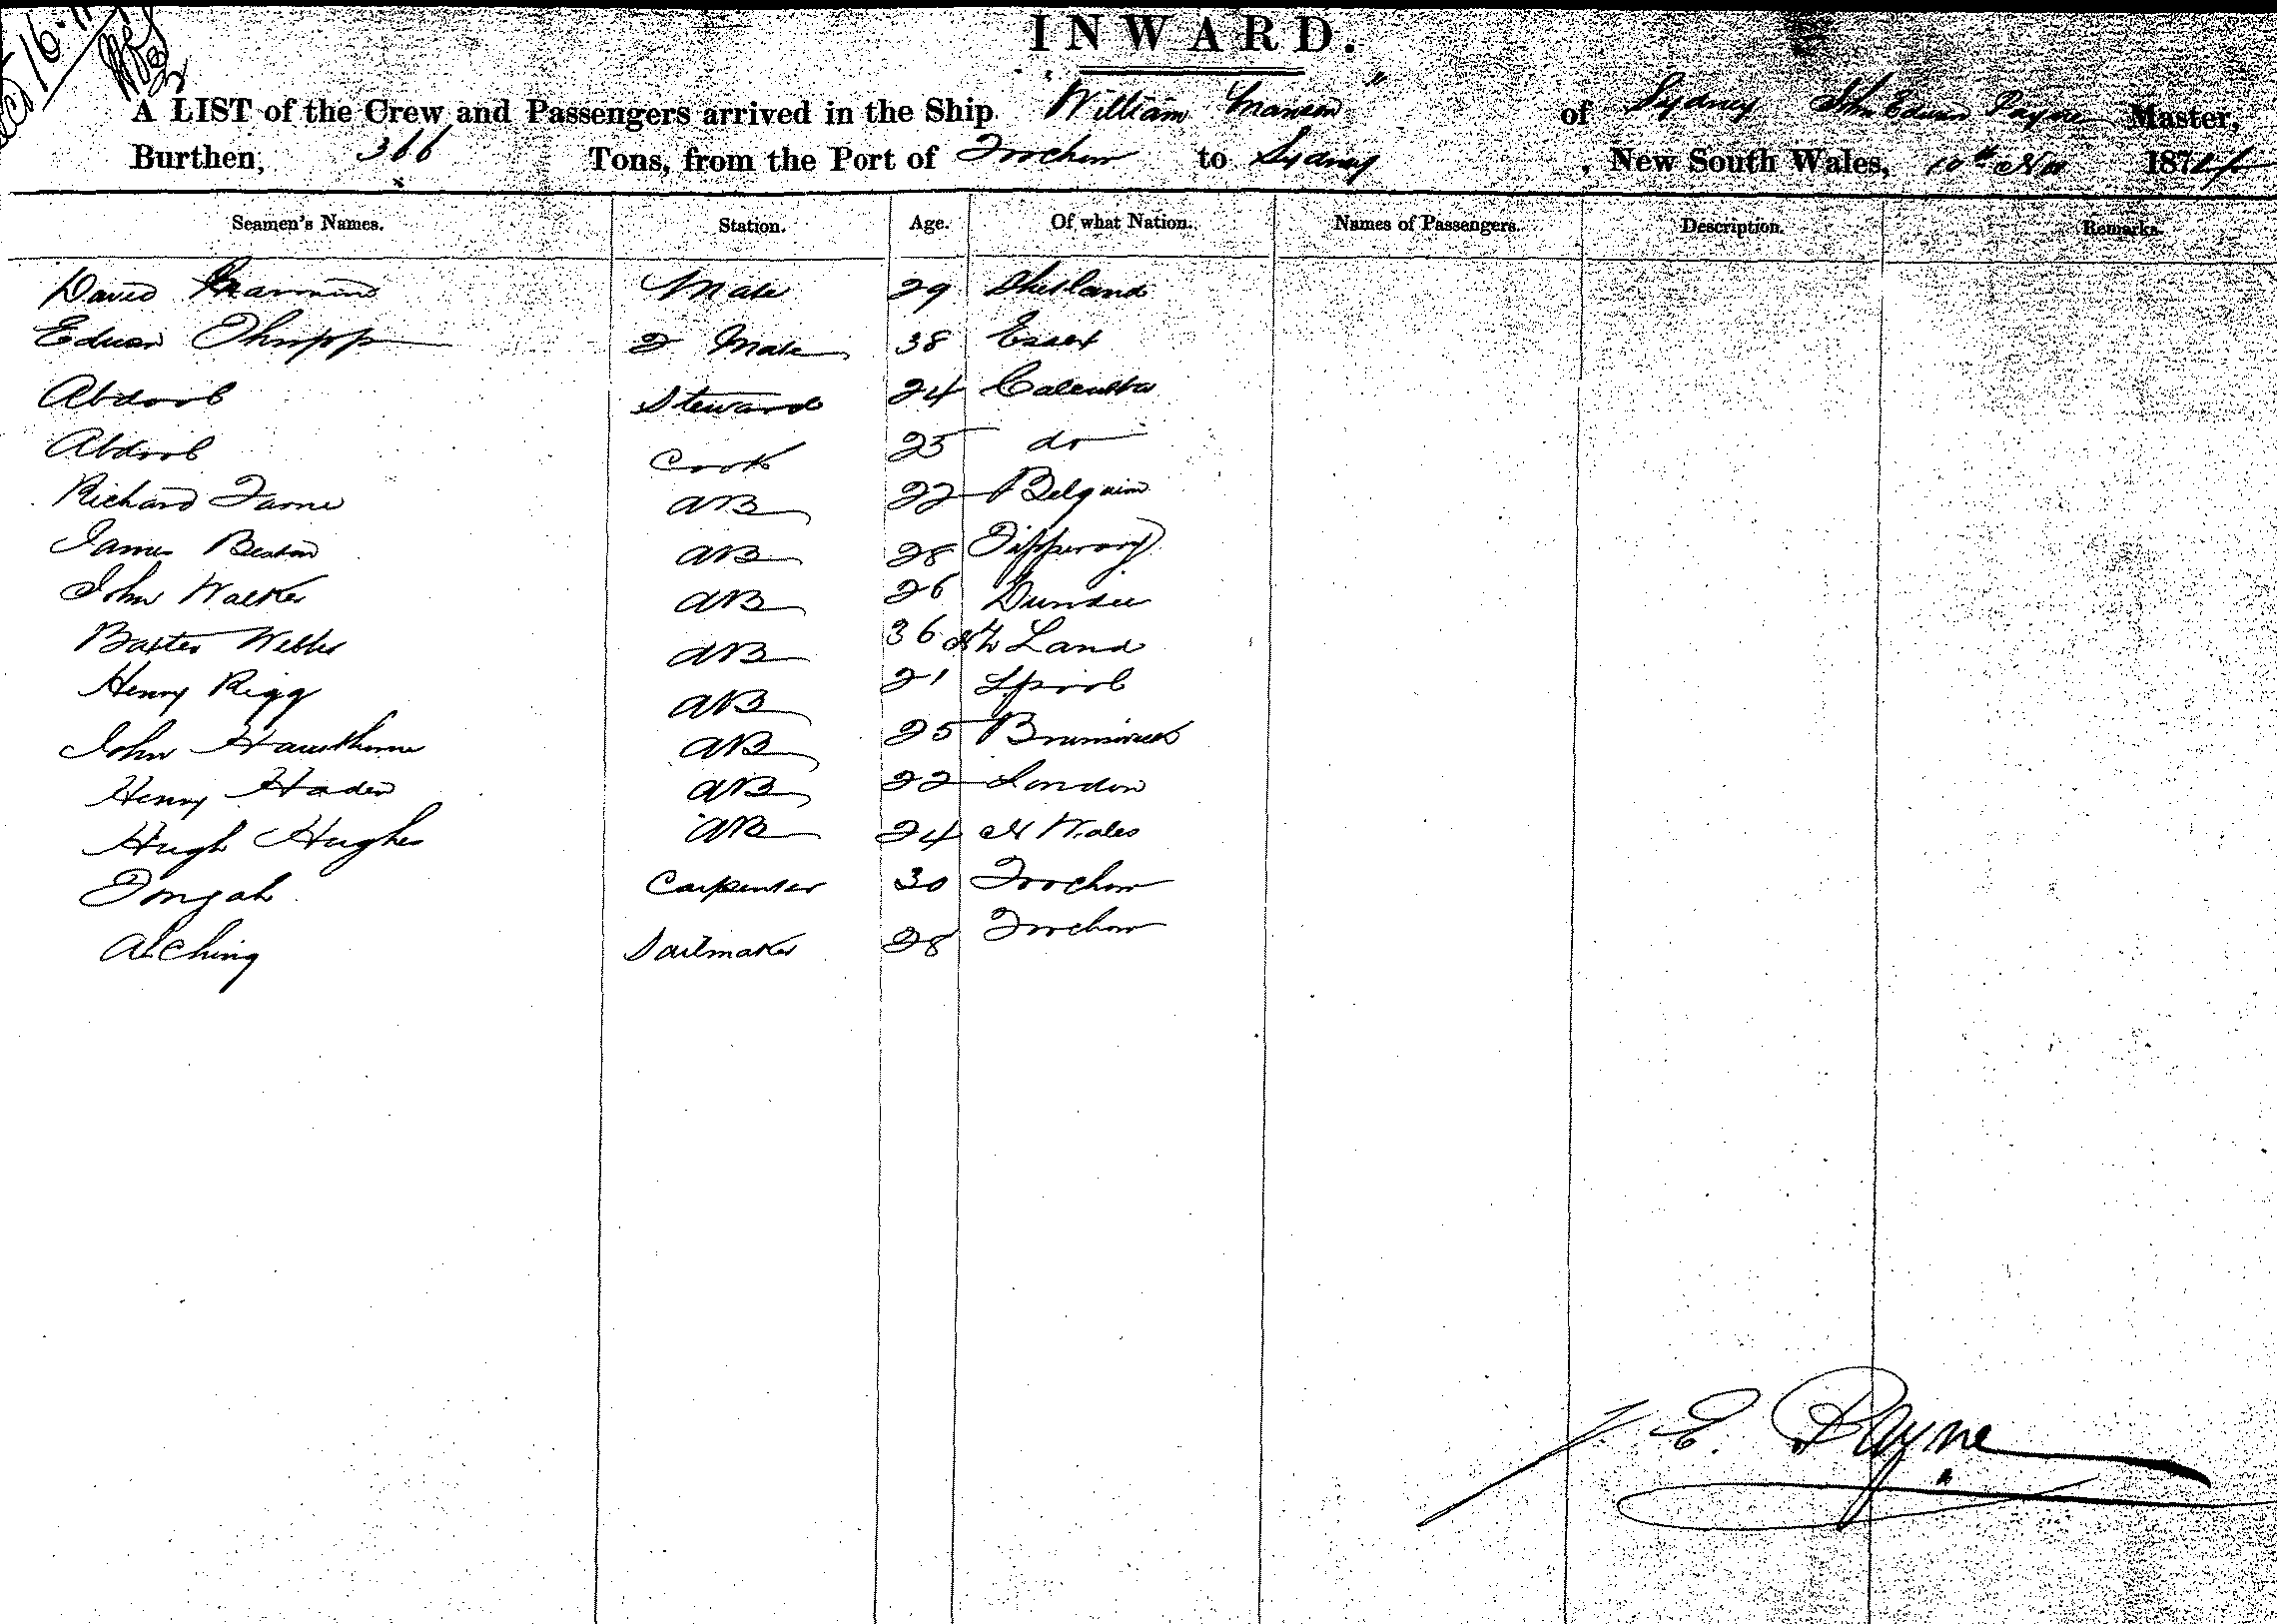 INWARD.
A LIST of the Crew and Passengers arrived in the Ship "William Manson" of Sydney John Edward Payne Master,
Burthen, 366 Tons, from the Port of Foochow to Sydney, New South Wales, 10th Nov 1874
Seamen's Names. Station. Age. Of what Nation. Names of Passengers. Description. Remarks.
David Mate 29 Shetland
Edward Thripp 2 Mate 38 Essex
Abdool Steward 24 Calcutta
Abdool Cook 25 do
Richard AB 22 Belguim
James Beaton AB 28 Tipperary
John Walker AB 26 Dundee
Baxter Webber AB 36 Land
Henry Rigg AB 21 Lpool
John Hawthorne AB 25 Brunswick
Henry Haden AB 22 London
Hugh Hughes AB 24 N Wales
Tongah Carpenter 30 Foochow
Ahching Sailmaker 28 Foochow
J. E. Payne